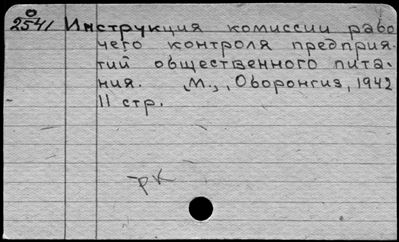 О
2541 Инструкция комиссии рабо
чего контроля предприя-
тий общественного пита-
ния. М., Оборонгиз, 1942
11 стр.
РК